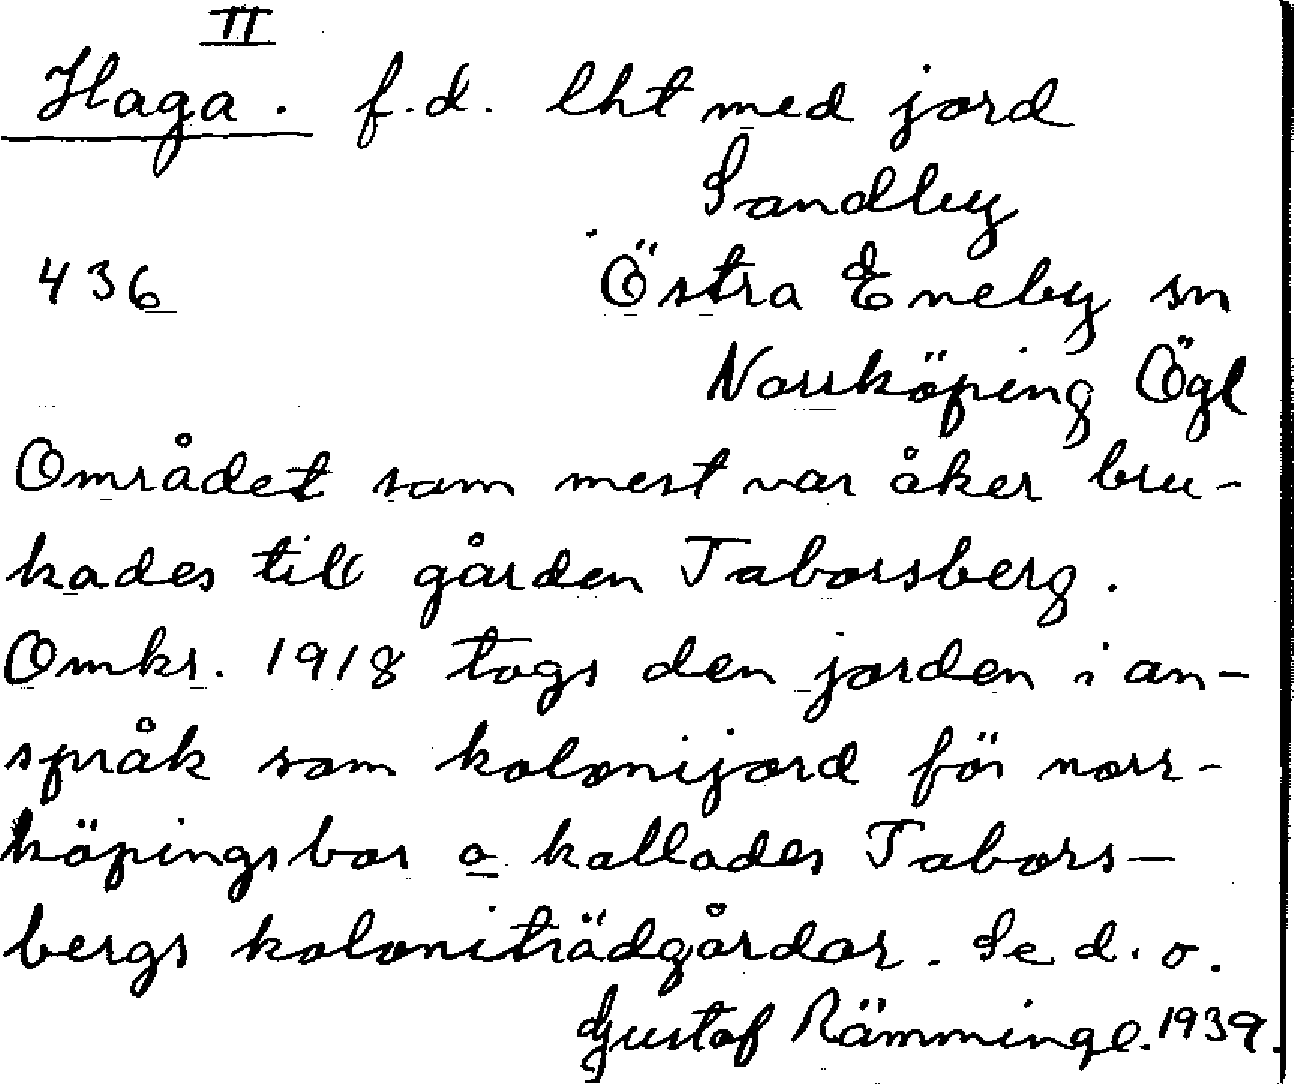 II
Haga. f.d. lht med jord
Sandby
436 Östra Eneby sn
Norrköping Ögl
Området som mest var åker bru-
kades till gården Taborsberg.
Omkr. 1918 togs den jorden i an-
språk som kolonijord för norr-
köpingsbor o. kallades Tabors-
bergs koloniträdgårdar. Se d. o.
Gustaf Rämminge. 1939.